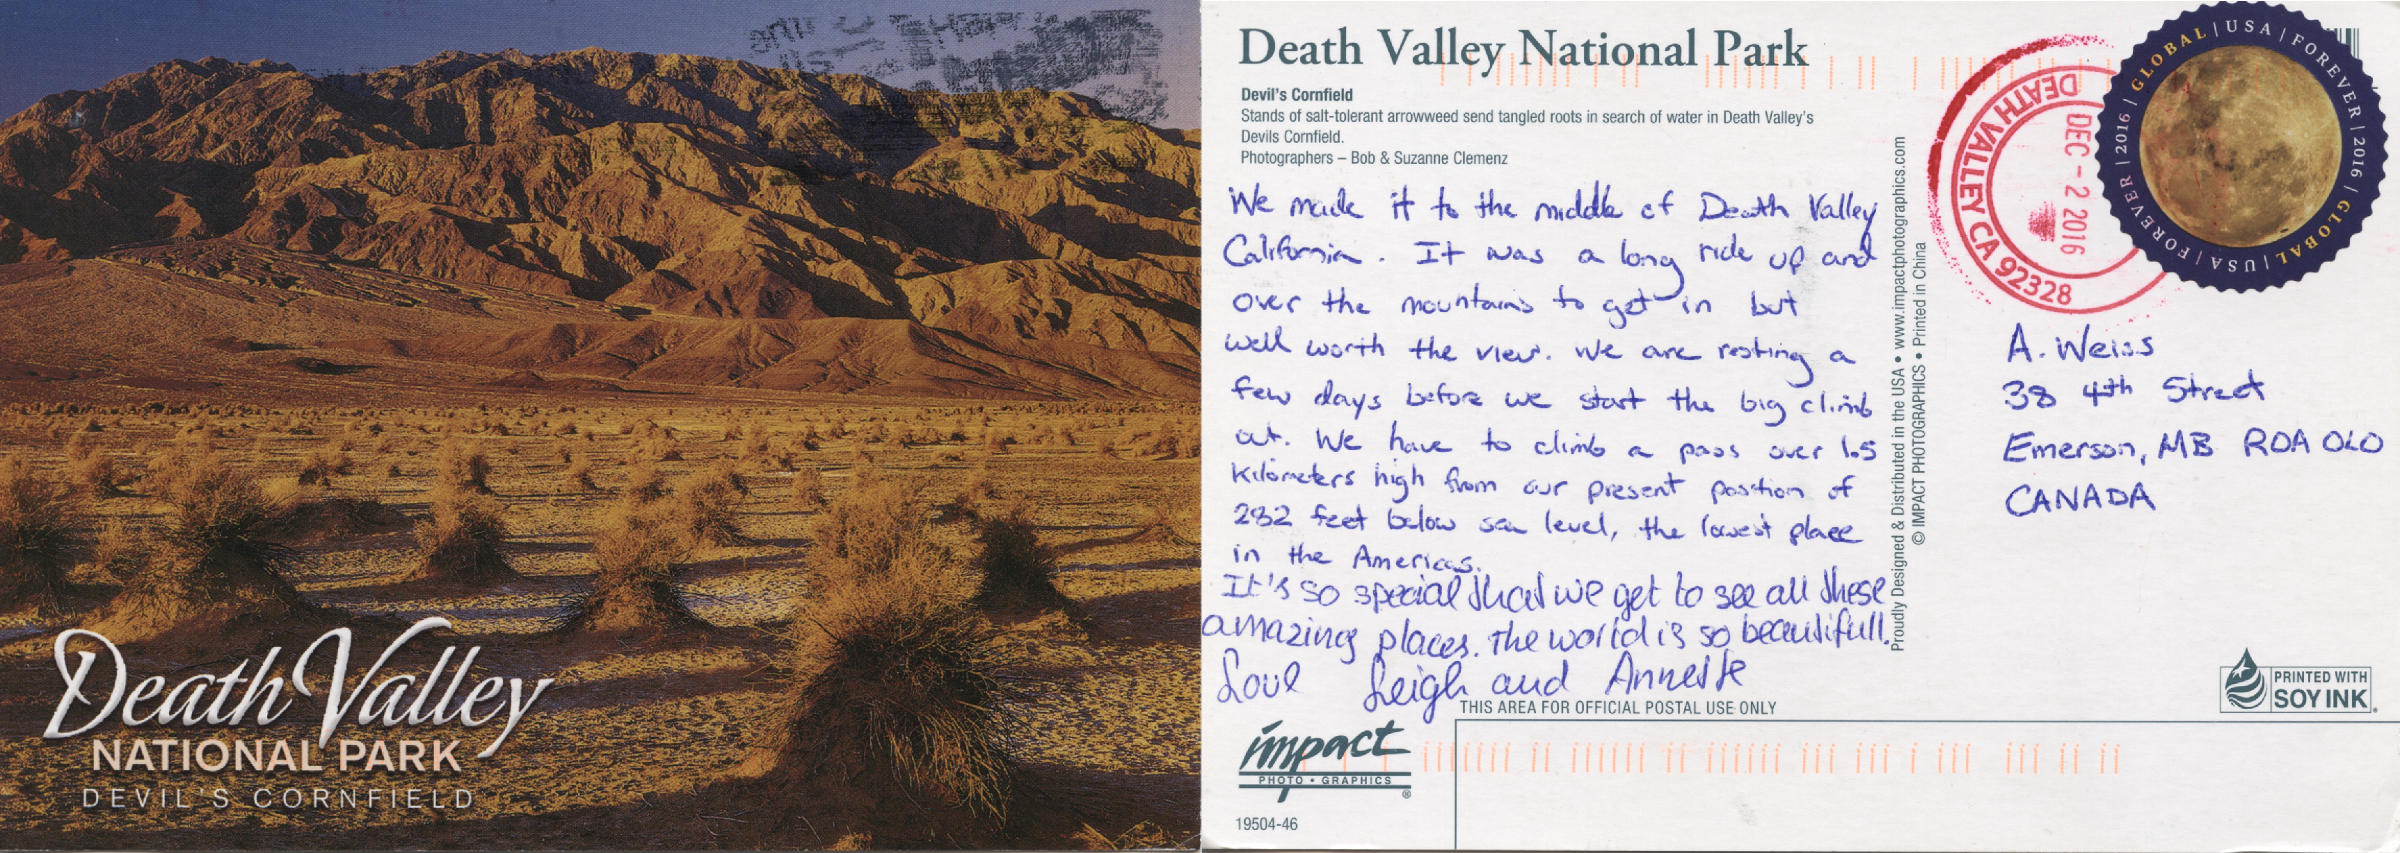 Death Valley
NATIONAL PARK
DEVIL'S CORNFIELD
Death Valley National Park
Devil's Cornfield
Stands of salt-tolerant arrowweed send tangled roots in search of water in Death Valley's
Devils Cornfield.
Photographers – Bob & Suzanne Clemenz
We made it to the middle of Death Valley
California. It was a long ride up and
over the mountains to get in but
well worth the view. We are resting a
few days before we start the big climb
out. We have to climb a pass over 1.5
kilometers high from our present position of
282 feet below sea level, the lowest place
in the Americas.
It's so special that we get to see all these
amazing places. The world is so beautifull.
Love Leigh and Annette
Proudly Designed & Distributed in the USA • www.impactphotographics.com
© IMPACT PHOTOGRAPHICS • Printed in China
DEATH VALLEY CA 92328
DEC - 2 2016
GLOBAL | USA | FOREVER | 2016 | GLOBAL | USA | FOREVER | 2016 |
A. Weiss
38 4th Street
Emerson, MB R0A 0L0
CANADA
PRINTED WITH
SOY INK
THIS AREA FOR OFFICIAL POSTAL USE ONLY
impact
PHOTO • GRAPHICS
®
19504-46